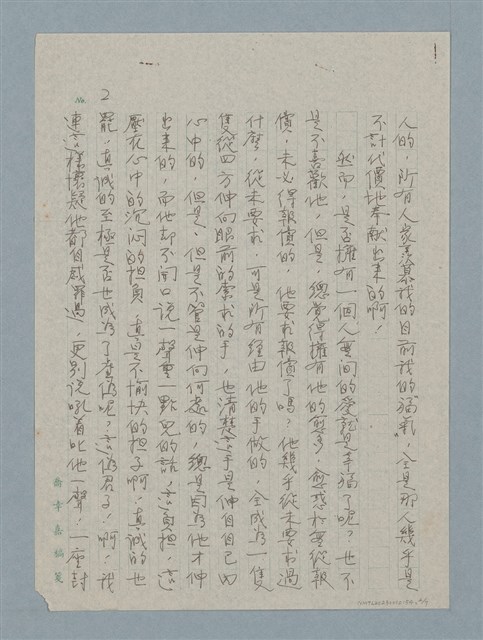 人的，所有人家羨慕我的目前我的福氣，全是那人幾乎是
不計代價地奉献出來的啊！
然而，是否擁有一個人無間的愛就是幸福了呢？也不
是不喜歡他，但是，總覺得擁有他的愈多，愈感於要從報
償，未必得報償的，他要求報償了嗎？他幾乎從未要求過
什麼，從未要求，可是所有經由他的手做的，全成為一隻
隻從四方伸向眼前的索求的手，也清楚這手是伸自自己內
心中的，但是、但是不管是伸向何處的，總是因為他才伸
出來的，而他却不開口說一聲重一點兒的話，這負担，這
壓在心中的沉悶的担負，真是不愉快的担子啊！真誠的也
罷，真誠的至極是否也成為了虛偽呢，這偽君子！啊，我
連這樣懷疑他都自感罪過，更別說吼着叱他一聲，一座封
No. 2
稿箋